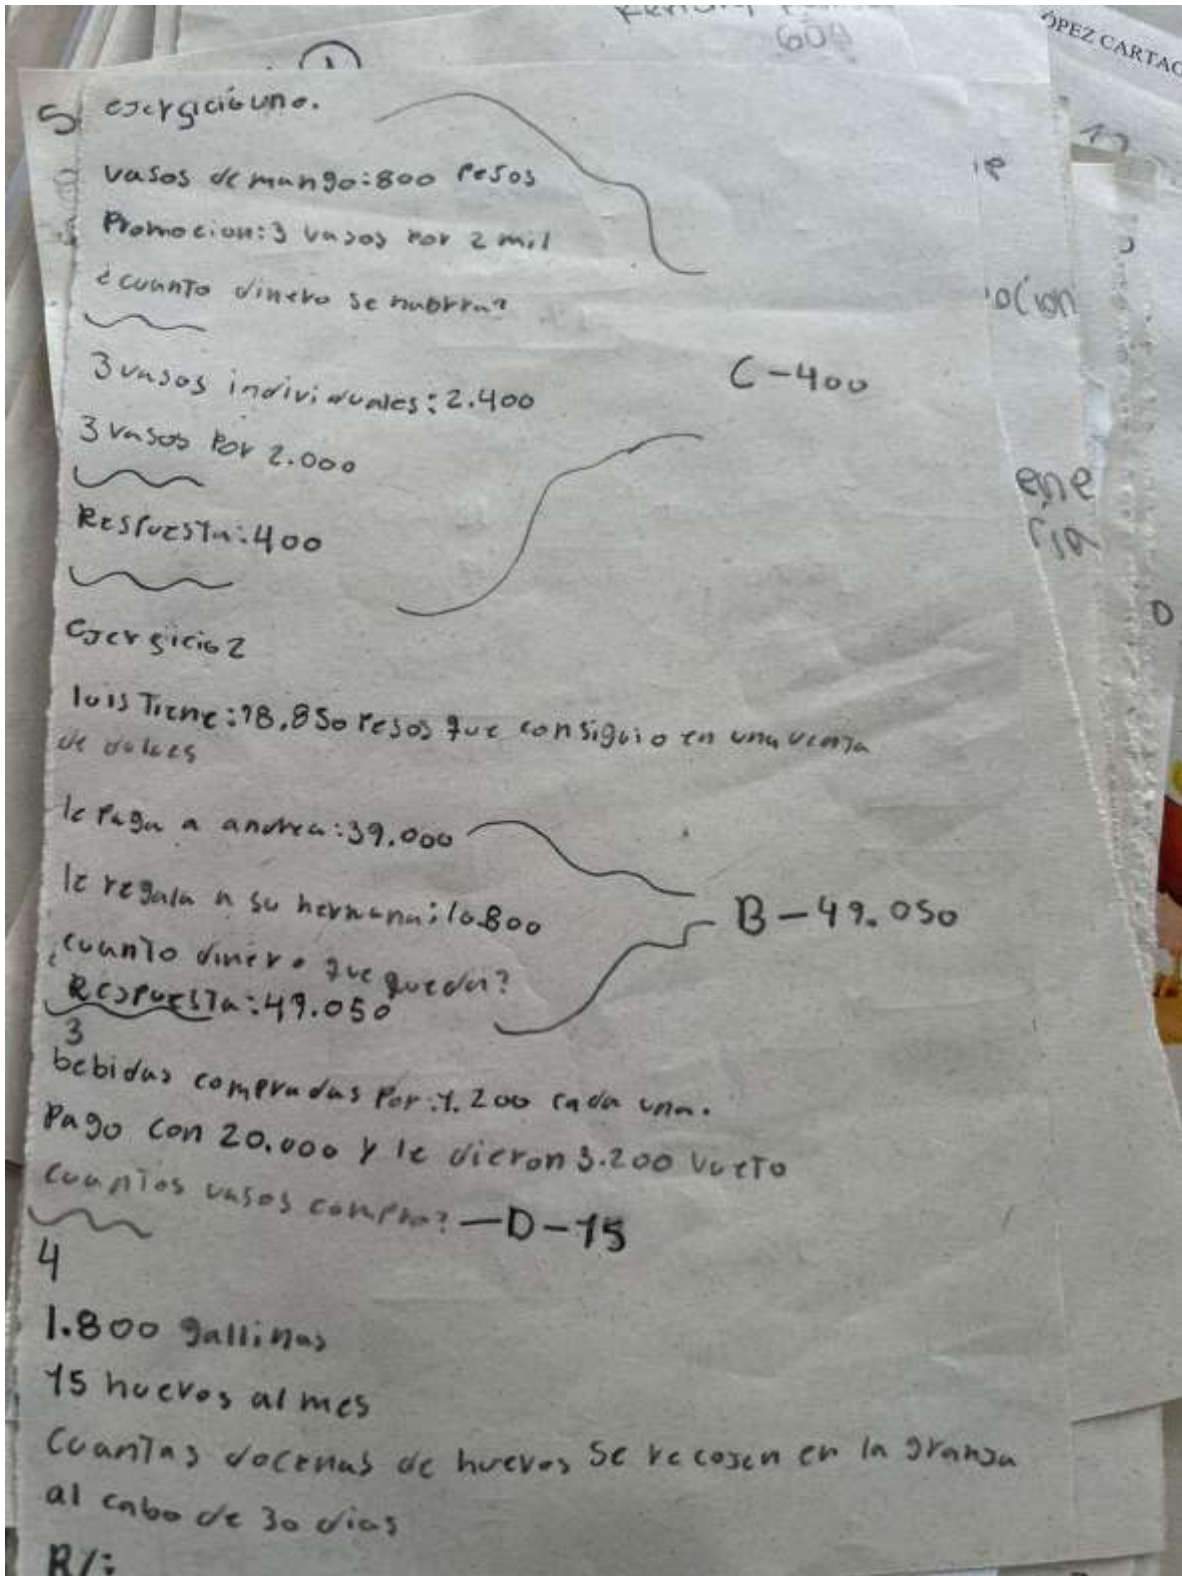 60A
ÓPEZ CARTAG
1
S esergicio uno.
vasos de mango:800 Pesos
Promocion:3 vasos Por 2 mil
¿cuanto dinero se haorra?
3 vasos individuales:2.400
C-400
3 vasos Por 2.000
Respuesta:400
esergicio 2
luis Tiene:98.850 Pesos que consiguio en una venta
de dulces
le Paga a andrea:39.000
le regala a su hermana:10.800
B-49.050
¿cuanto dinero que queda?
Respuesta:49.050
3
bebidas compradas Por:1.200 cada una.
Pago con 20.000 y le dieron 3.200 vueto
cuantos vasos compro?—D-15
4
1.800 gallinas
15 huevos al mes
Cuantas docenas de huevos se recojen en la granja
al cabo de 30 dias
R/:
ocion
ene
ria